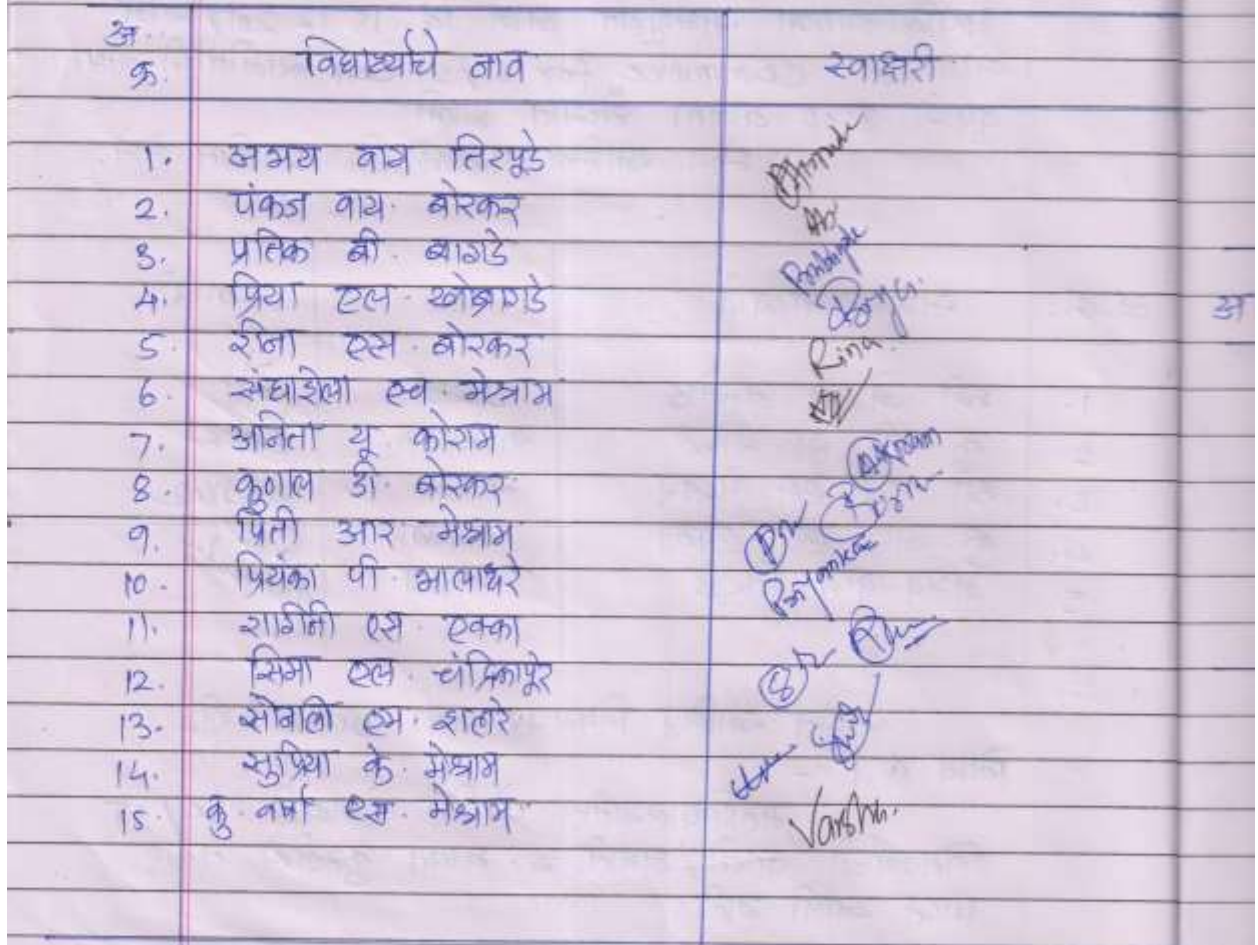 अ. क्र. विद्यार्थ्याचे नाव स्वाक्षरी
1. अभय वाय तिरपूडे
2. पंकज वाय. बोरकर
3. प्रतिक बी. बागडे
4. प्रिया एल. खोब्रागडे
5. रीना एस. बोरकर Rina.
6. संघाशिला एच. मेश्राम
7. अनिता यू. कोराम AKoram
8. कुणाल डी. बोरकर
9. प्रिती आर मेश्राम
10. प्रियंका पी. भालाधरे Priyanka
11. रागीनी एस. एक्का
12. सिमा एल. चंद्रिकापूरे
13. सोनाली एम. शहारे
14. सुप्रिया के. मेश्राम
15. कु. वर्षा एस. मेश्राम Varsha.
अ